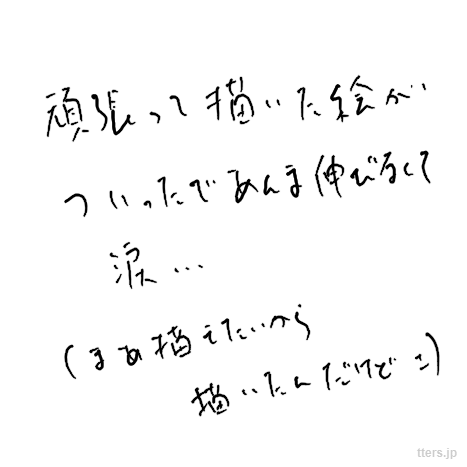 頑張って描いた絵が
ついったであんま伸びなくて
涙…
(まあ描きたいから
描いたんだけどさ)
tters.jp